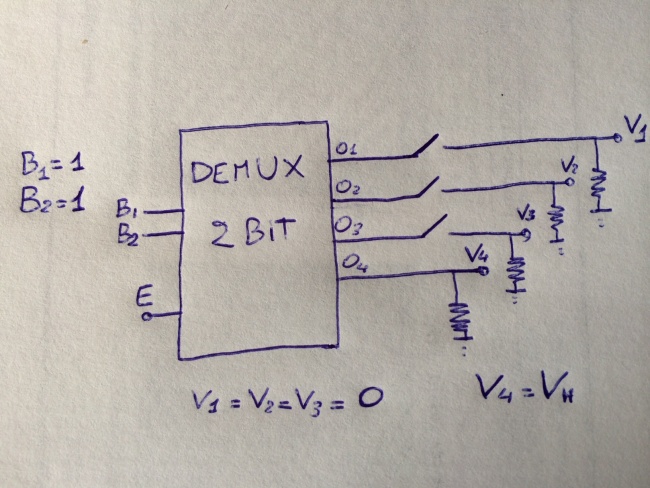 B1=1
B2=1
DEMUX
2 BIT
B1
B2
E
O1
O2
O3
O4
V1
V2
V3
V4
V1=V2=V3=0
V4=VH